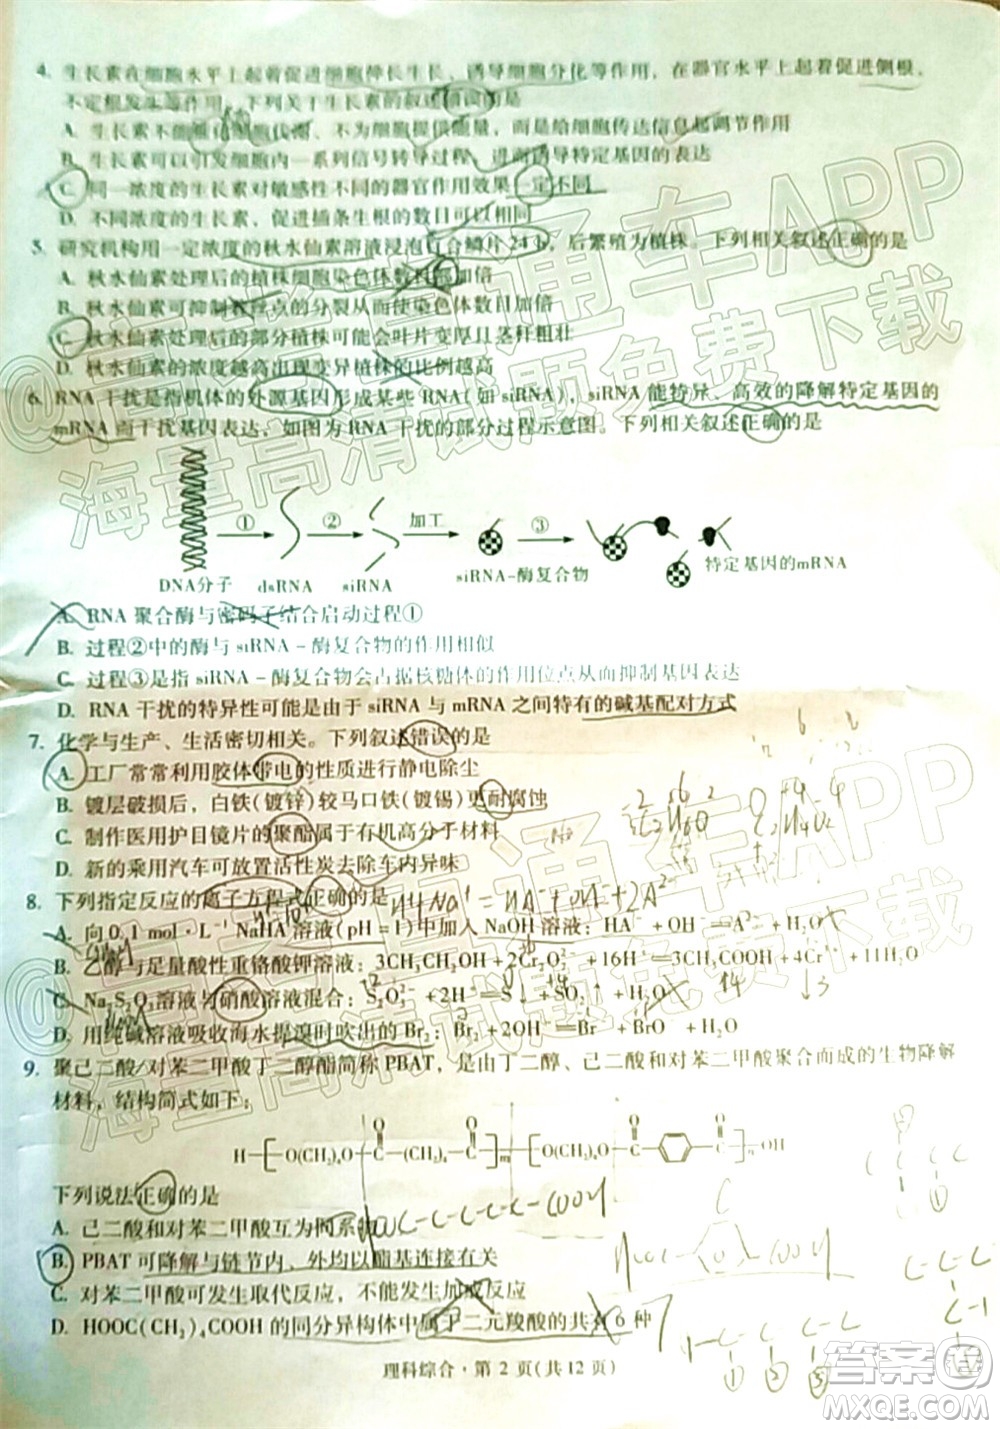 4. 生长素在细胞水平上起着促进细胞伸长生长、诱导细胞分化等作用，在器官水平上起着促进侧根、
不定根发生等作用。下列关于生长素的叙述错误的是
A. 生长素不能催化细胞代谢、不为细胞提供能量，而是给细胞传达信息起调节作用
B. 生长素可以引发细胞内一系列信号转导过程，进而诱导特定基因的表达
C. 同一浓度的生长素对敏感性不同的器官作用效果一定不同
D. 不同浓度的生长素，促进插条生根的数目可以相同
5. 研究机构用一定浓度的秋水仙素溶液浸泡百合鳞片24 h，后繁殖为植株。下列相关叙述正确的是
A. 秋水仙素处理后的植株细胞染色体数目都加倍
B. 秋水仙素可抑制着丝点的分裂从而使染色体数目加倍
C. 秋水仙素处理后的部分植株可能会叶片变厚且茎秆粗壮
D. 秋水仙素的浓度越高出现变异植株的比例越高
6. RNA 干扰是指机体的外源基因形成某些 RNA(如 siRNA)，siRNA 能特异、高效的降解特定基因的
mRNA 而干扰基因表达，如图为 RNA 干扰的部分过程示意图。下列相关叙述正确的是
① ② 加工 ③
DNA分子 dsRNA siRNA siRNA-酶复合物 特定基因的mRNA
A. RNA 聚合酶与密码子结合启动过程①
B. 过程②中的酶与 siRNA－酶复合物的作用相似
C. 过程③是指 siRNA－酶复合物会占据核糖体的作用位点从而抑制基因表达
D. RNA 干扰的特异性可能是由于 siRNA 与 mRNA 之间特有的碱基配对方式
7. 化学与生产、生活密切相关。下列叙述错误的是
A. 工厂常常利用胶体带电的性质进行静电除尘
B. 镀层破损后，白铁(镀锌)较马口铁(镀锡)更耐腐蚀
C. 制作医用护目镜片的聚酯属于有机高分子材料
D. 新的乘用汽车可放置活性炭去除车内异味
8. 下列指定反应的离子方程式正确的是
A. 向 0.1 mol·L⁻¹ NaHA 溶液(pH=1)中加入 NaOH 溶液：HA⁻+OH⁻=A²⁻+H₂O
B. 乙醇与足量酸性重铬酸钾溶液：3CH₃CH₂OH+2Cr₂O₇²⁻+16H⁺=3CH₃COOH+4Cr³⁺+11H₂O
C. Na₂S₂O₃溶液与硝酸溶液混合：S₂O₃²⁻+2H⁺=S↓+SO₂↑+H₂O
D. 用纯碱溶液吸收海水提溴时吹出的 Br₂：Br₂+2OH⁻=Br⁻+BrO⁻+H₂O
9. 聚己二酸/对苯二甲酸丁二醇酯简称 PBAT，是由丁二醇、己二酸和对苯二甲酸聚合而成的生物降解
材料，结构简式如下：
H O(CH₂)₄O C (CH₂)₄ C m O(CH₂)₄O C C n OH
下列说法正确的是
A. 己二酸和对苯二甲酸互为同系物
B. PBAT 可降解与链节内、外均以酯基连接有关
C. 对苯二甲酸可发生取代反应，不能发生加成反应
D. HOOC(CH₂)₄COOH 的同分异构体中属于二元羧酸的共有 6 种
理科综合·第 2 页(共 12 页)
答案圈
MXQE.COM